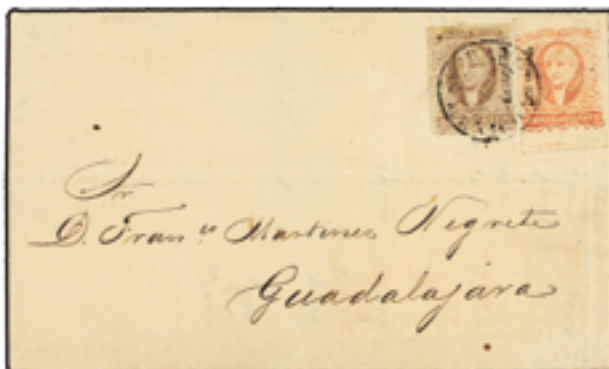 Sr
D. Franco Martinez Negrete
Guadalajara